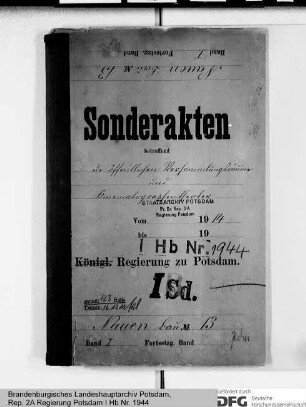 Band I Fortsetzg. Band
Nauen bau No 13
Sonderakten
betreffend
die öffentlichen Versammlungsräume
und
Kinematographentheater
STAATSARCHIV POTSDAM
Pr. Br. Rep. 2A
Regierung Potsdam
Vom 1914
bis 19
I Hb Nr. 1944
Königl. Regierung zu Potsdam.
I Sd.
Nauen bau No 13
Band I Fortsetzg. Band
Brandenburgisches Landeshauptarchiv Potsdam,
Rep. 2A Regierung Potsdam I Hb Nr. 1944
gefördert durch
DFG Deutsche
Forschungsgemeinschaft